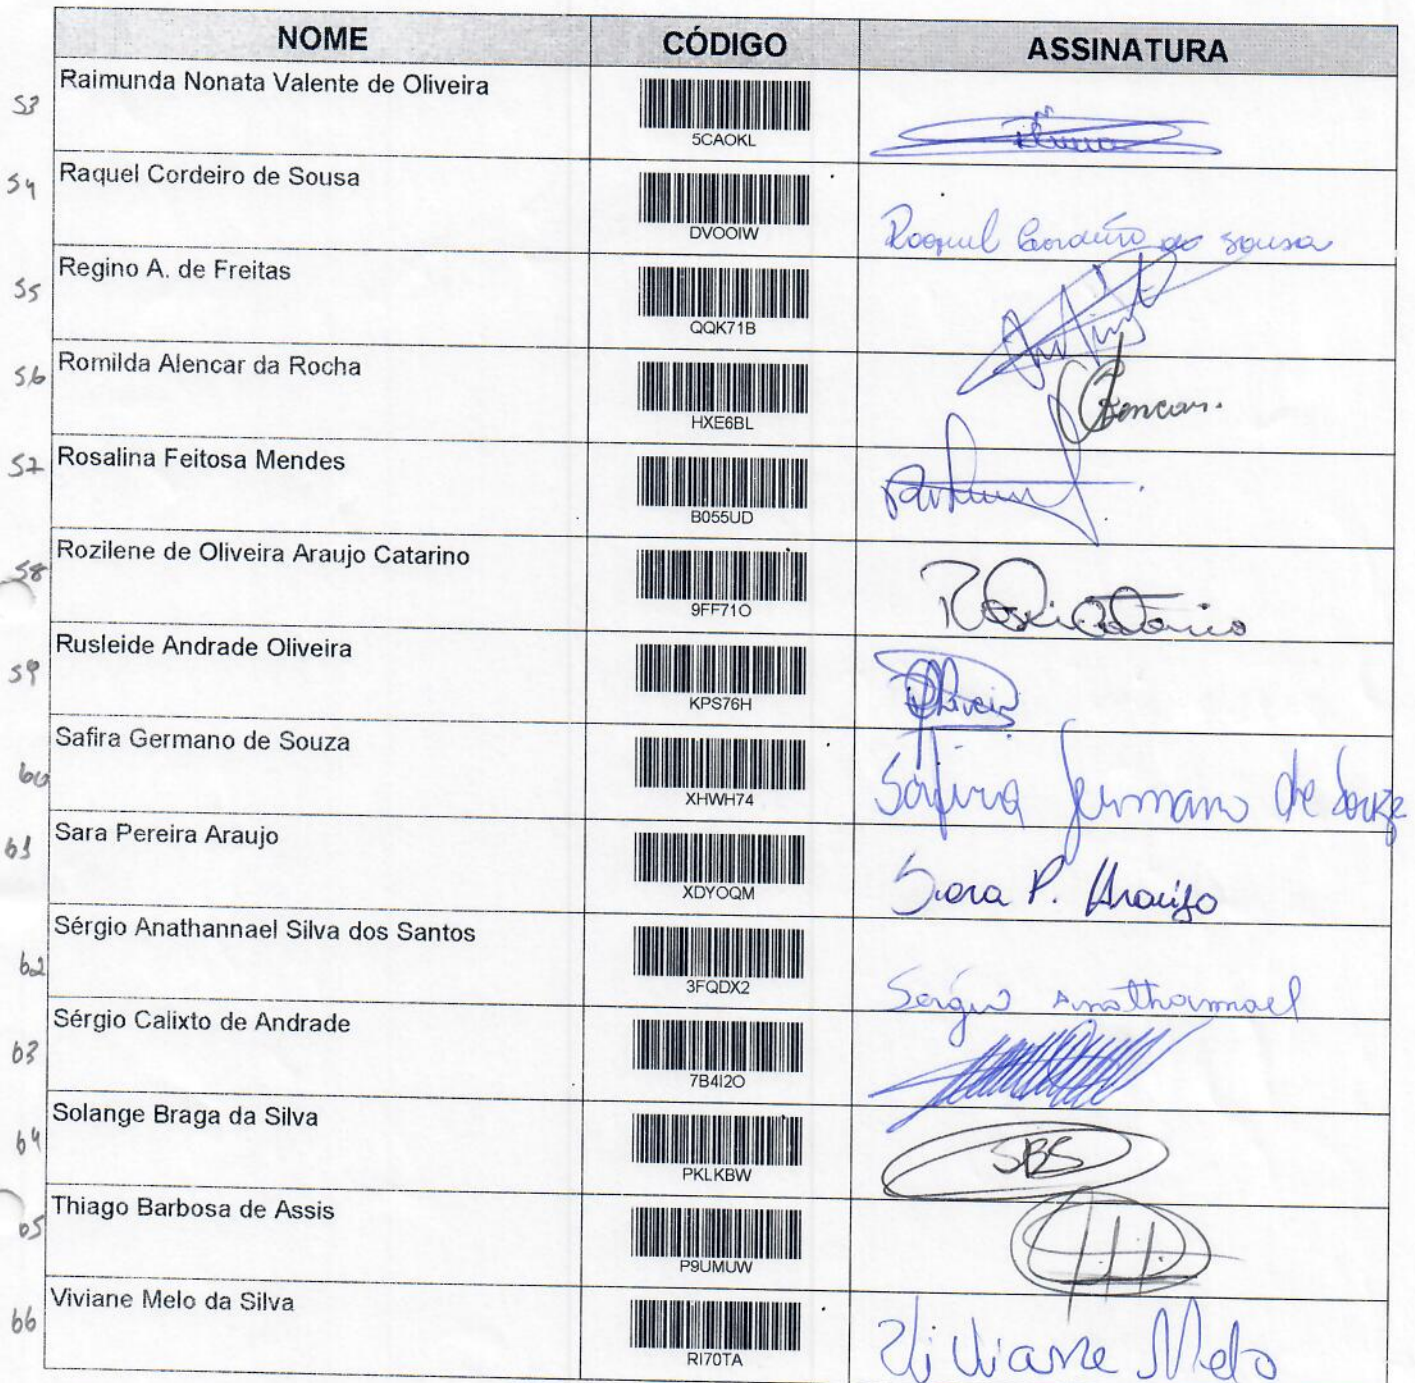 NOME CÓDIGO ASSINATURA
53 Raimunda Nonata Valente de Oliveira 5CAOKL
54 Raquel Cordeiro de Sousa DVOOIW Raquel Cordeiro de Sousa
55 Regino A. de Freitas QQK71B
56 Romilda Alencar da Rocha HXE6BL
57 Rosalina Feitosa Mendes B055UD
58 Rozilene de Oliveira Araujo Catarino 9FF71O
59 Rusleide Andrade Oliveira KPS76H
60 Safira Germano de Souza XHWH74 Safira Germano de Souza
61 Sara Pereira Araujo XDYOQM Sara P. Araujo
62 Sérgio Anathannael Silva dos Santos 3FQDX2 Sérgio Anathannael
63 Sérgio Calixto de Andrade 7B4I2O
64 Solange Braga da Silva PKLKBW SBS
65 Thiago Barbosa de Assis P9UMUW
66 Viviane Melo da Silva RI70TA Viviane Melo